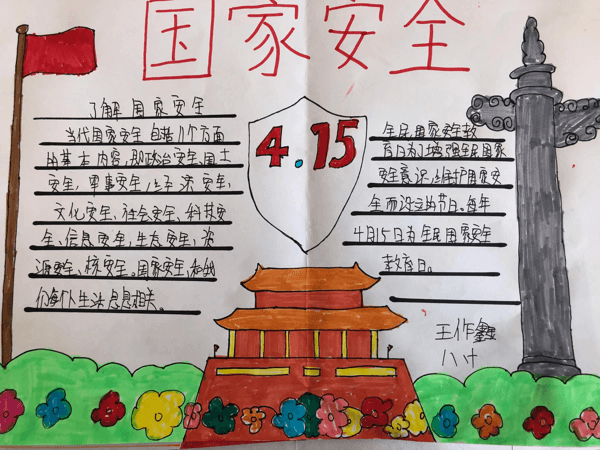 国家安全
了解国家安全
当代国家安全包括11个方面
的基本内容,即政治安全,国土
安全,军事安全,经济安全,
文化安全、社会安全、科技安
全、信息安全,生态安全,资
源安全、核安全。国家安全,和我
们每个人生活息息相关。
4.15
全民国家安全教
育日为了增强全民国家
安全意识,维护国家安
全而设立的节日。每年
4月15日为全民国家安全
教育日。
王作鑫
八计